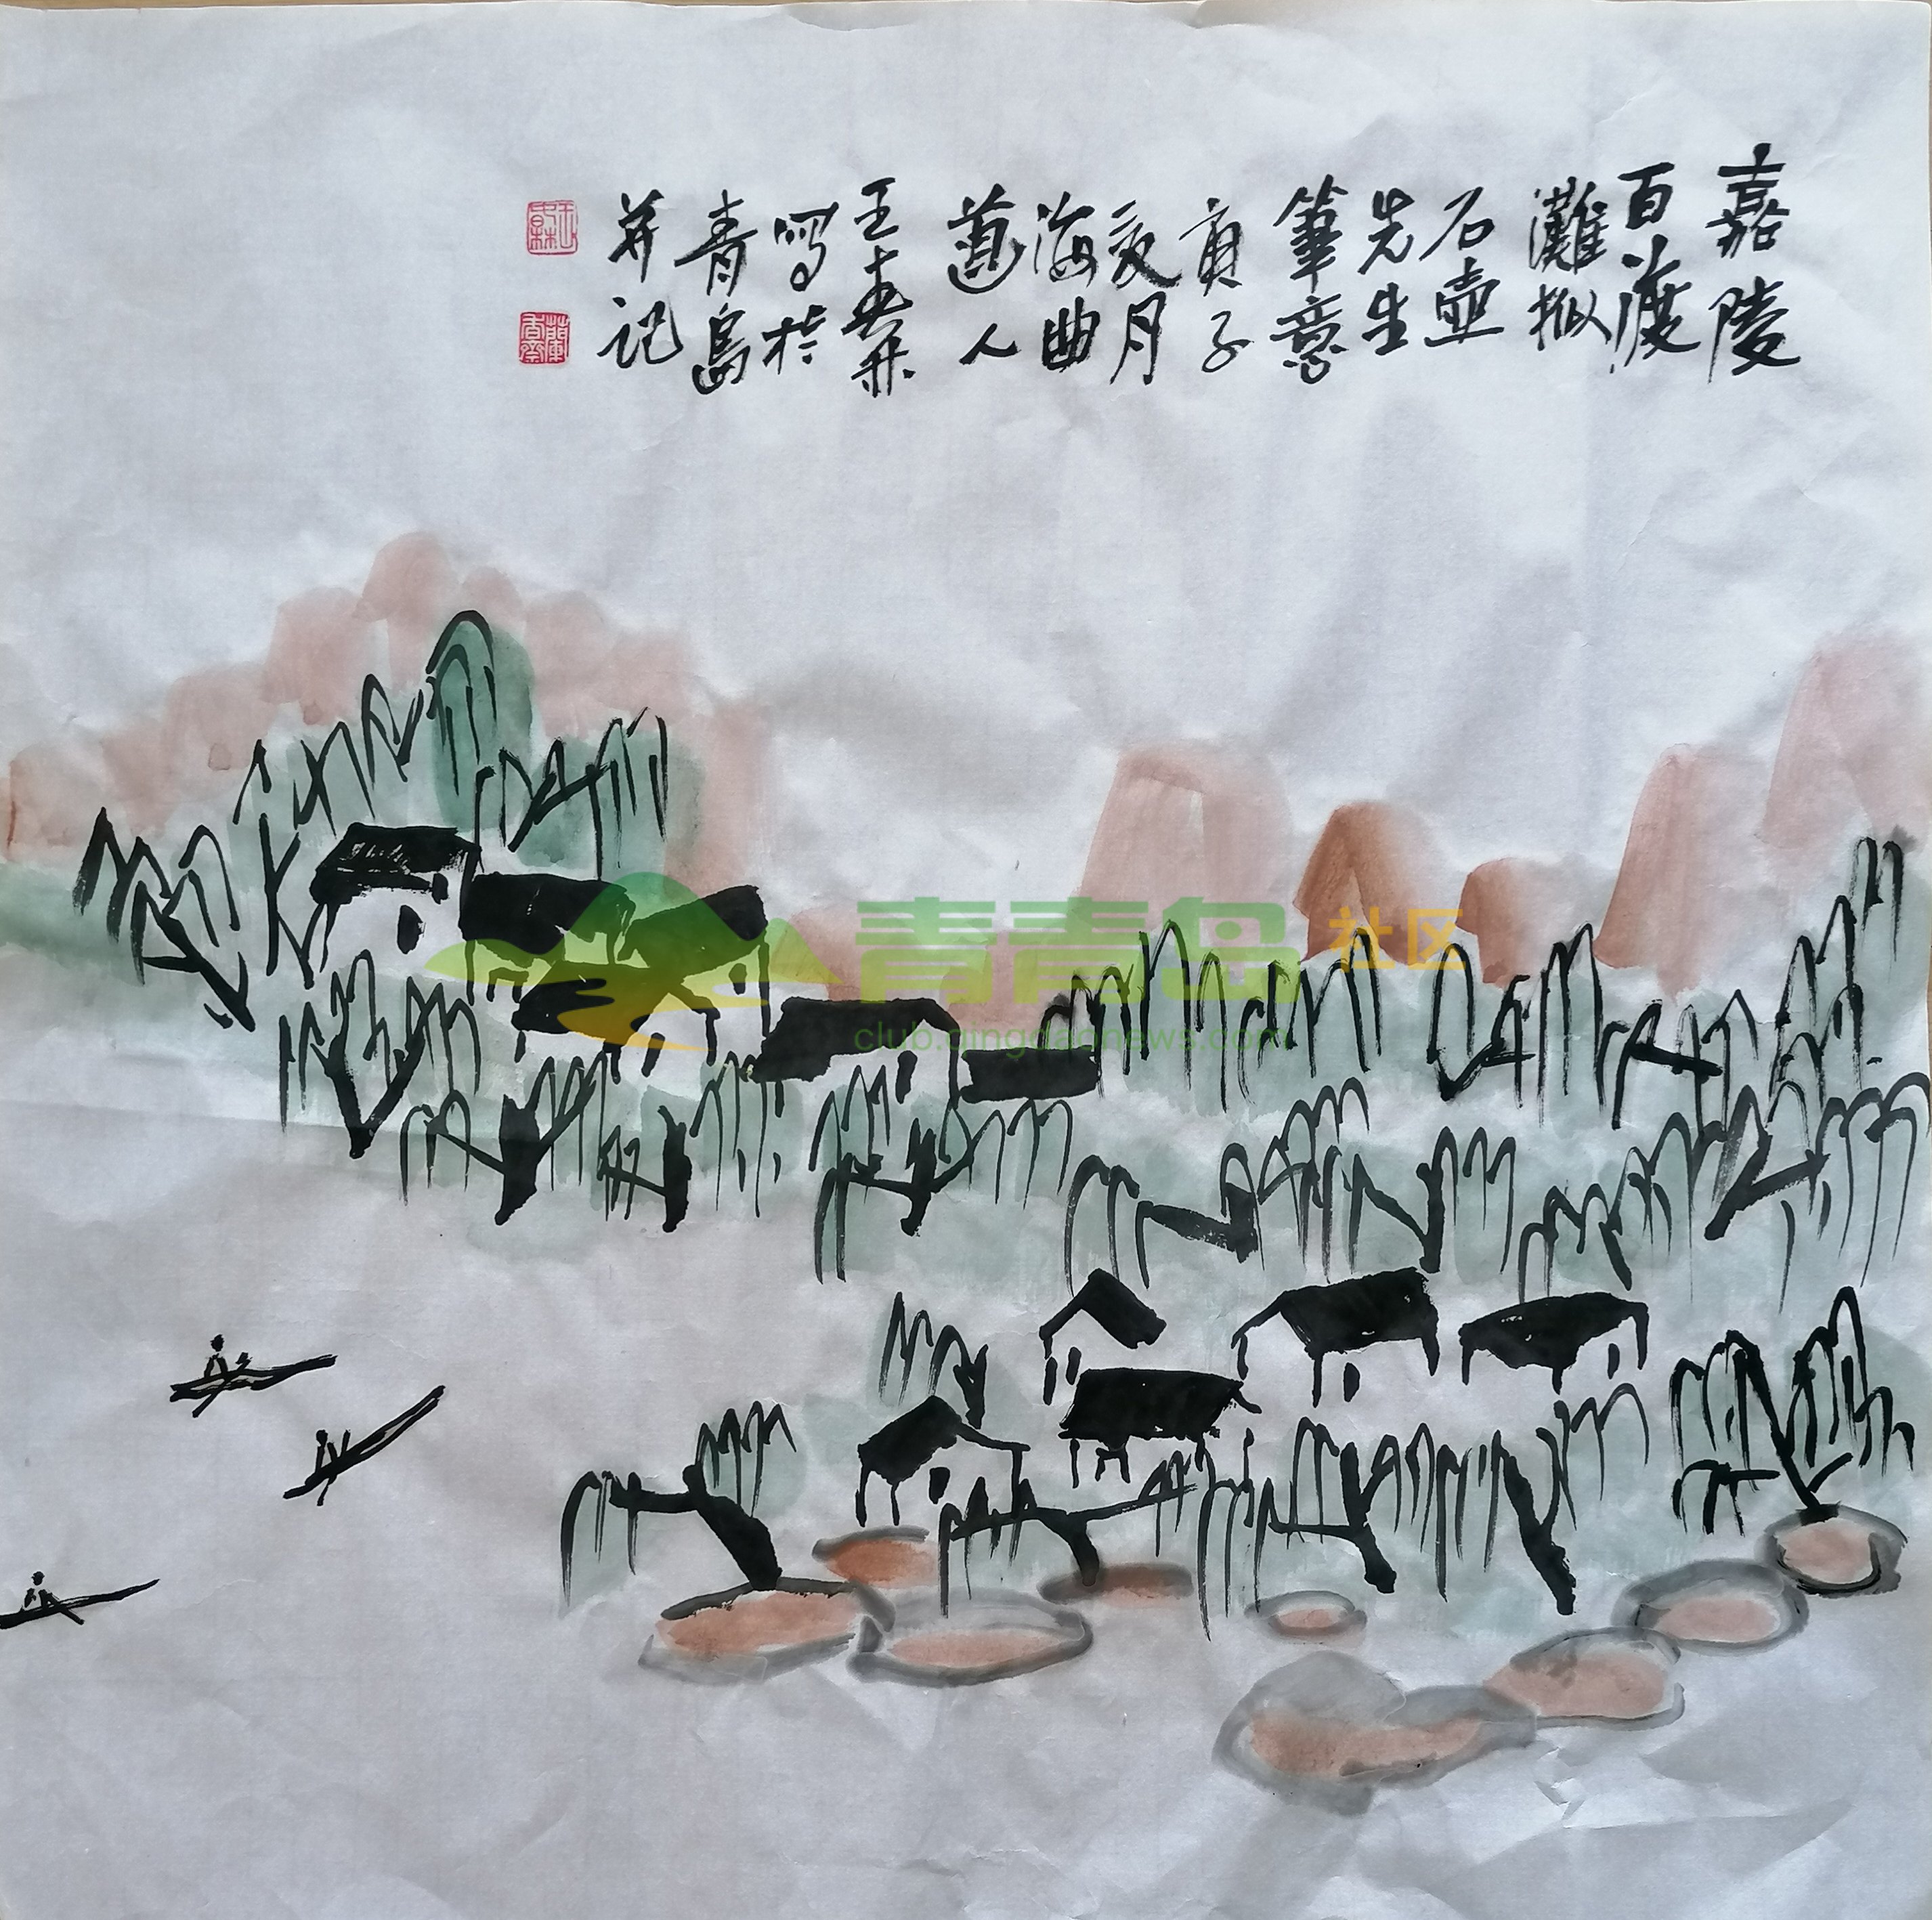 嘉陵
百渡
灘拟
石壶
先生
筆意
庚子
夏月
海曲
道人
王
写於
青島
并记
蘭香齋
青青岛社区
club.qingdaonews.com